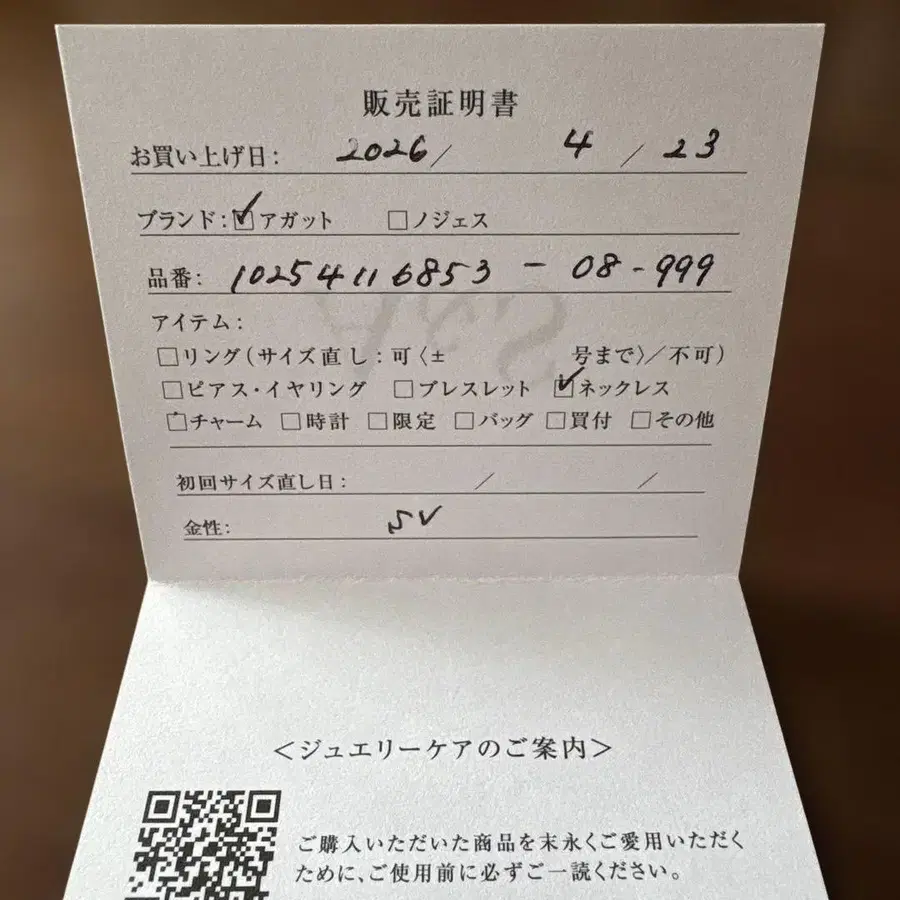 販売証明書
お買い上げ日: 2026/ 4 / 23
ブランド: ☑アガット □ノジェス
品番: 10254116853 - 08-999
アイテム:
□リング(サイズ直し:可〈± 号まで〉/不可)
□ピアス・イヤリング □ブレスレット ☑ネックレス
□チャーム □時計 □限定 □バッグ □買付 □その他
初回サイズ直し日: / /
金性: SV
<ジュエリーケアのご案内>
ご購入いただいた商品を末永くご愛用いただく
ために、ご使用前に必ずご一読ください。